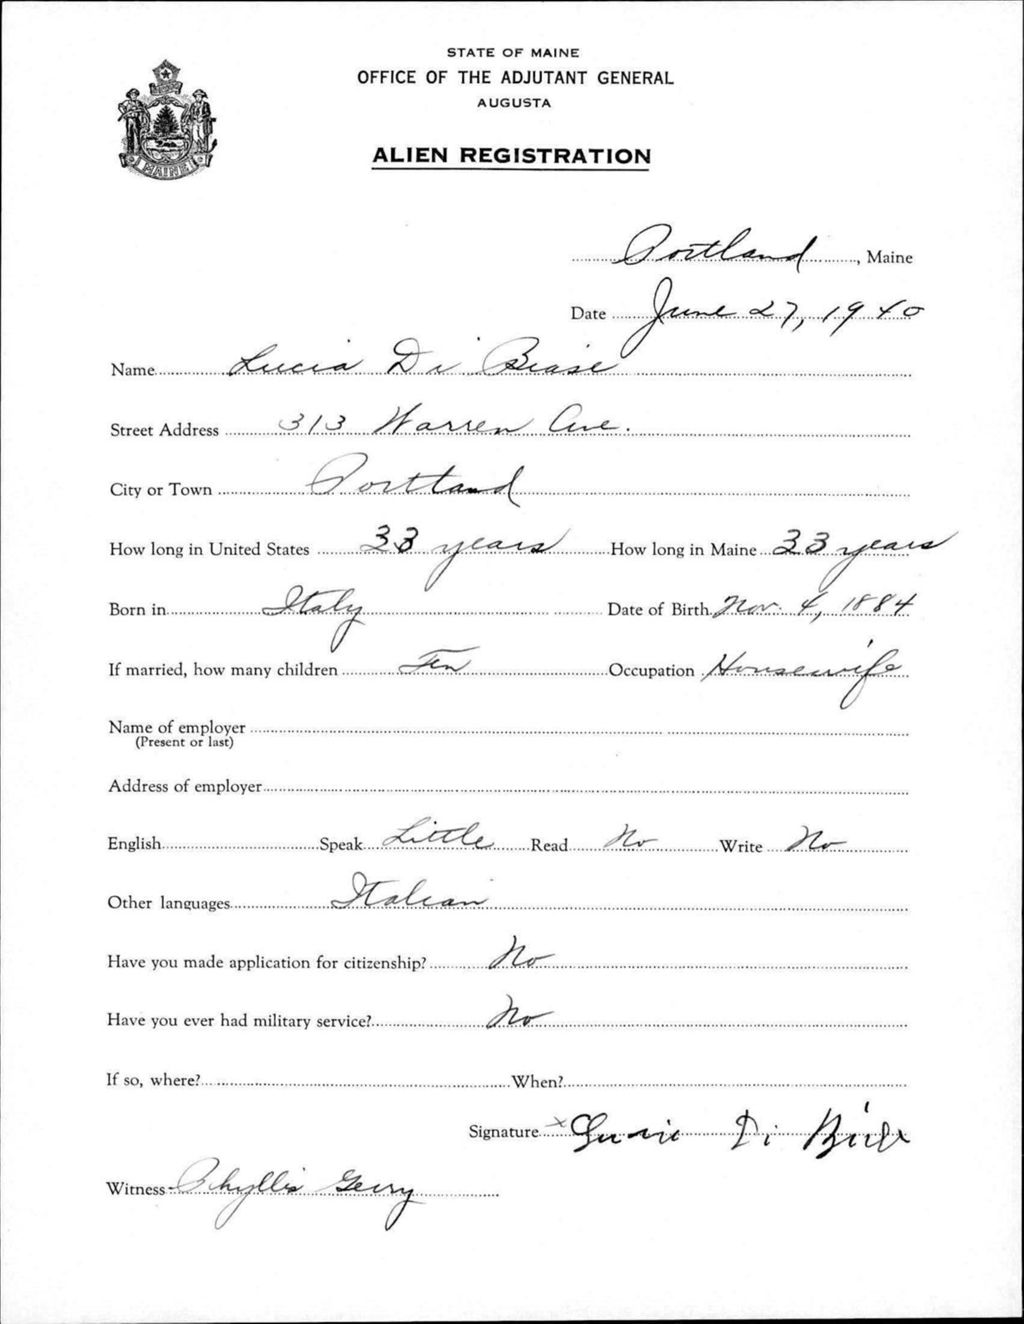 STATE OF MAINE
OFFICE OF THE ADJUTANT GENERAL
AUGUSTA
ALIEN REGISTRATION
MAINE
Portland, Maine
Date June 27, 1940
Name Lucia Di Biase
Street Address 313 Warren Ave.
City or Town Portland
How long in United States 33 years How long in Maine 33 years
Born in Italy Date of Birth Nov. 4, 1884
If married, how many children Ten Occupation Housewife
Name of employer
(Present or last)
Address of employer
English Speak Little Read No Write No
Other languages Italian
Have you made application for citizenship? No
Have you ever had military service? No
If so, where? When?
Signature x Di
Witness Phyllis Gerry